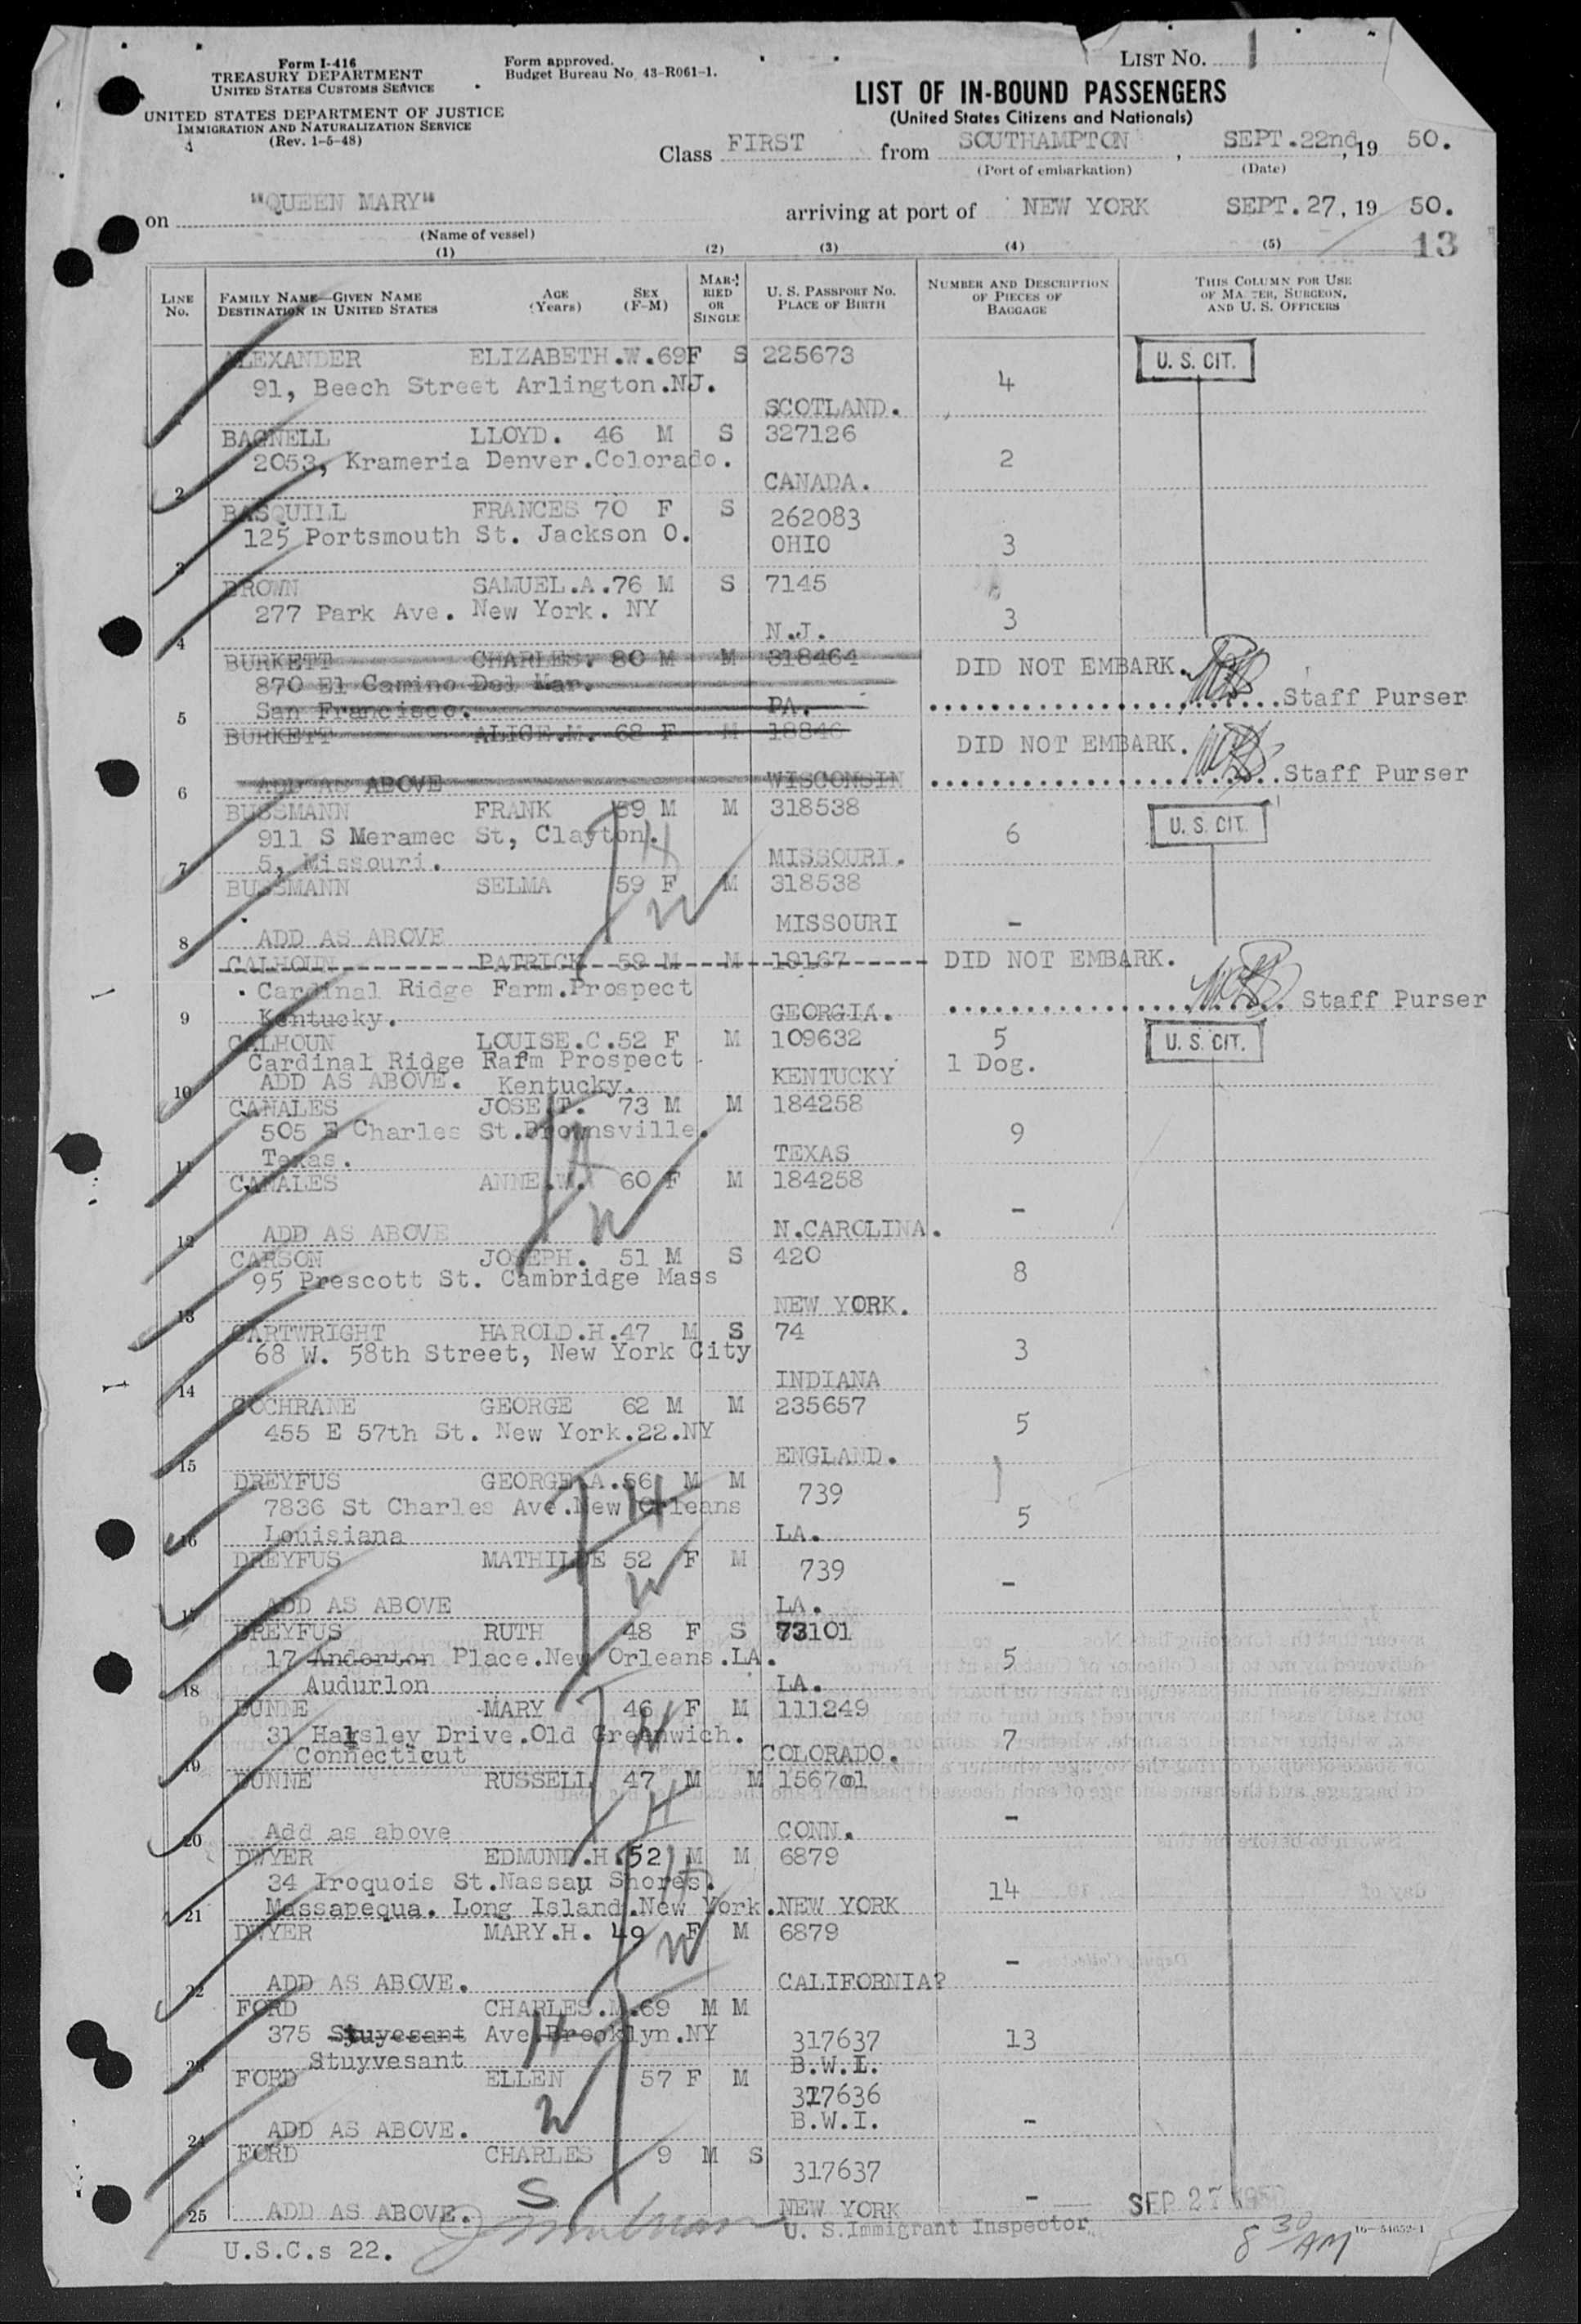 Form I-416
TREASURY DEPARTMENT
UNITED STATES CUSTOMS SERVICE
UNITED STATES DEPARTMENT OF JUSTICE
IMMIGRATION AND NATURALIZATION SERVICE
(Rev. 1-5-48)
Form approved.
Budget Bureau No. 43-R061-1.
LIST No. 1
LIST OF IN-BOUND PASSENGERS
(United States Citizens and Nationals)
Class FIRST from SOUTHAMPTON, SEPT.22nd, 19 50.
(Port of embarkation) (Date)
on "QUEEN MARY" arriving at port of NEW YORK SEPT.27, 19 50.
(Name of vessel)
13
(1) (2) (3) (4) (5)
LINE No. FAMILY NAME—GIVEN NAME DESTINATION IN UNITED STATES AGE (Years) SEX (F-M) MARRIED OR SINGLE U. S. PASSPORT No. PLACE OF BIRTH NUMBER AND DESCRIPTION OF PIECES OF BAGGAGE THIS COLUMN FOR USE OF MASTER, SURGEON, AND U. S. OFFICERS
ALEXANDER ELIZABETH.W.69F S 225673 U. S. CIT.
91, Beech Street Arlington.NJ. 4
SCOTLAND.
BAGNELL LLOYD. 46 M S 327126
2053, Krameria Denver.Colorado. 2
2 CANADA.
BASQUILL FRANCES 70 F S 262083
125 Portsmouth St. Jackson O. OHIO 3
3
BROWN SAMUEL.A.76 M S 7145
277 Park Ave. New York. NY 3
4 N.J.
BURKETT CHARLES. 80 M M 318464 DID NOT EMBARK.
870 El Camino Del Mar.
5 San Francisco. PA. Staff Purser
BURKETT ALICE.M. 68 F M 18846 DID NOT EMBARK.
6 ADD AS ABOVE WISCONSIN Staff Purser
BUSSMANN FRANK 59 M M 318538 U. S. CIT.
911 S Meramec St, Clayton. H 6
7 5, Missouri. MISSOURI.
BUSSMANN SELMA 59 F M 318538
W MISSOURI -
8 ADD AS ABOVE
CALHOUN PATRICK 59 M M 19167 DID NOT EMBARK.
Cardinal Ridge Farm.Prospect
9 Kentucky. GEORGIA. Staff Purser
CALHOUN LOUISE.C.52 F M 109632 5 U. S. CIT.
Cardinal Ridge Farm Prospect 1 Dog.
10 ADD AS ABOVE. Kentucky. KENTUCKY
CANALES JOSE T. 73 M M 184258
505 E Charles St.Brownsville. 9
11 Texas. H TEXAS
CANALES ANNE.W. 60 F M 184258
W -
12 ADD AS ABOVE N.CAROLINA.
CARSON JOSEPH. 51 M S 420
95 Prescott St. Cambridge Mass 8
13 NEW YORK.
CARTWRIGHT HAROLD.H.47 M S 74
68 W. 58th Street, New York City 3
14 INDIANA
COCHRANE GEORGE 62 M M 235657
455 E 57th St. New York.22.NY 5
15 ENGLAND.
DREYFUS GEORGE.A.56 M M 739
7836 St Charles Ave.New Orleans H 5
16 Louisiana LA.
DREYFUS MATHILDE 52 F M 739
W -
17 ADD AS ABOVE LA.
DREYFUS RUTH 48 F S 73101
17 Andorton Place.New Orleans.LA. 5
18 Audurlon LA.
DUNNE MARY 46 F M 111249
31 Halsley Drive.Old Greenwich. W 7
19 Connecticut COLORADO.
DUNNE RUSSELL 47 M M 156701
H -
20 Add as above CONN.
DWYER EDMUND.H.52 M M 6879
34 Iroquois St.Nassau Shores. H 14
21 Massapequa. Long Island.New York. NEW YORK
DWYER MARY.H. 49 F M 6879
W -
22 ADD AS ABOVE. CALIFORNIA?
FORD CHARLES.M.69 M M
375 Stuyesant Ave.Brooklyn.NY H 317637 13
23 Stuyvesant B.W.I.
FORD ELLEN 57 F M 317636
W B.W.I. -
24 ADD AS ABOVE.
FORD CHARLES 9 M S 317637
S
25 ADD AS ABOVE. NEW YORK - SEP 27 1950
U. S. Immigrant Inspector
U.S.C.s 22. 8 30 AM 16—54652-1